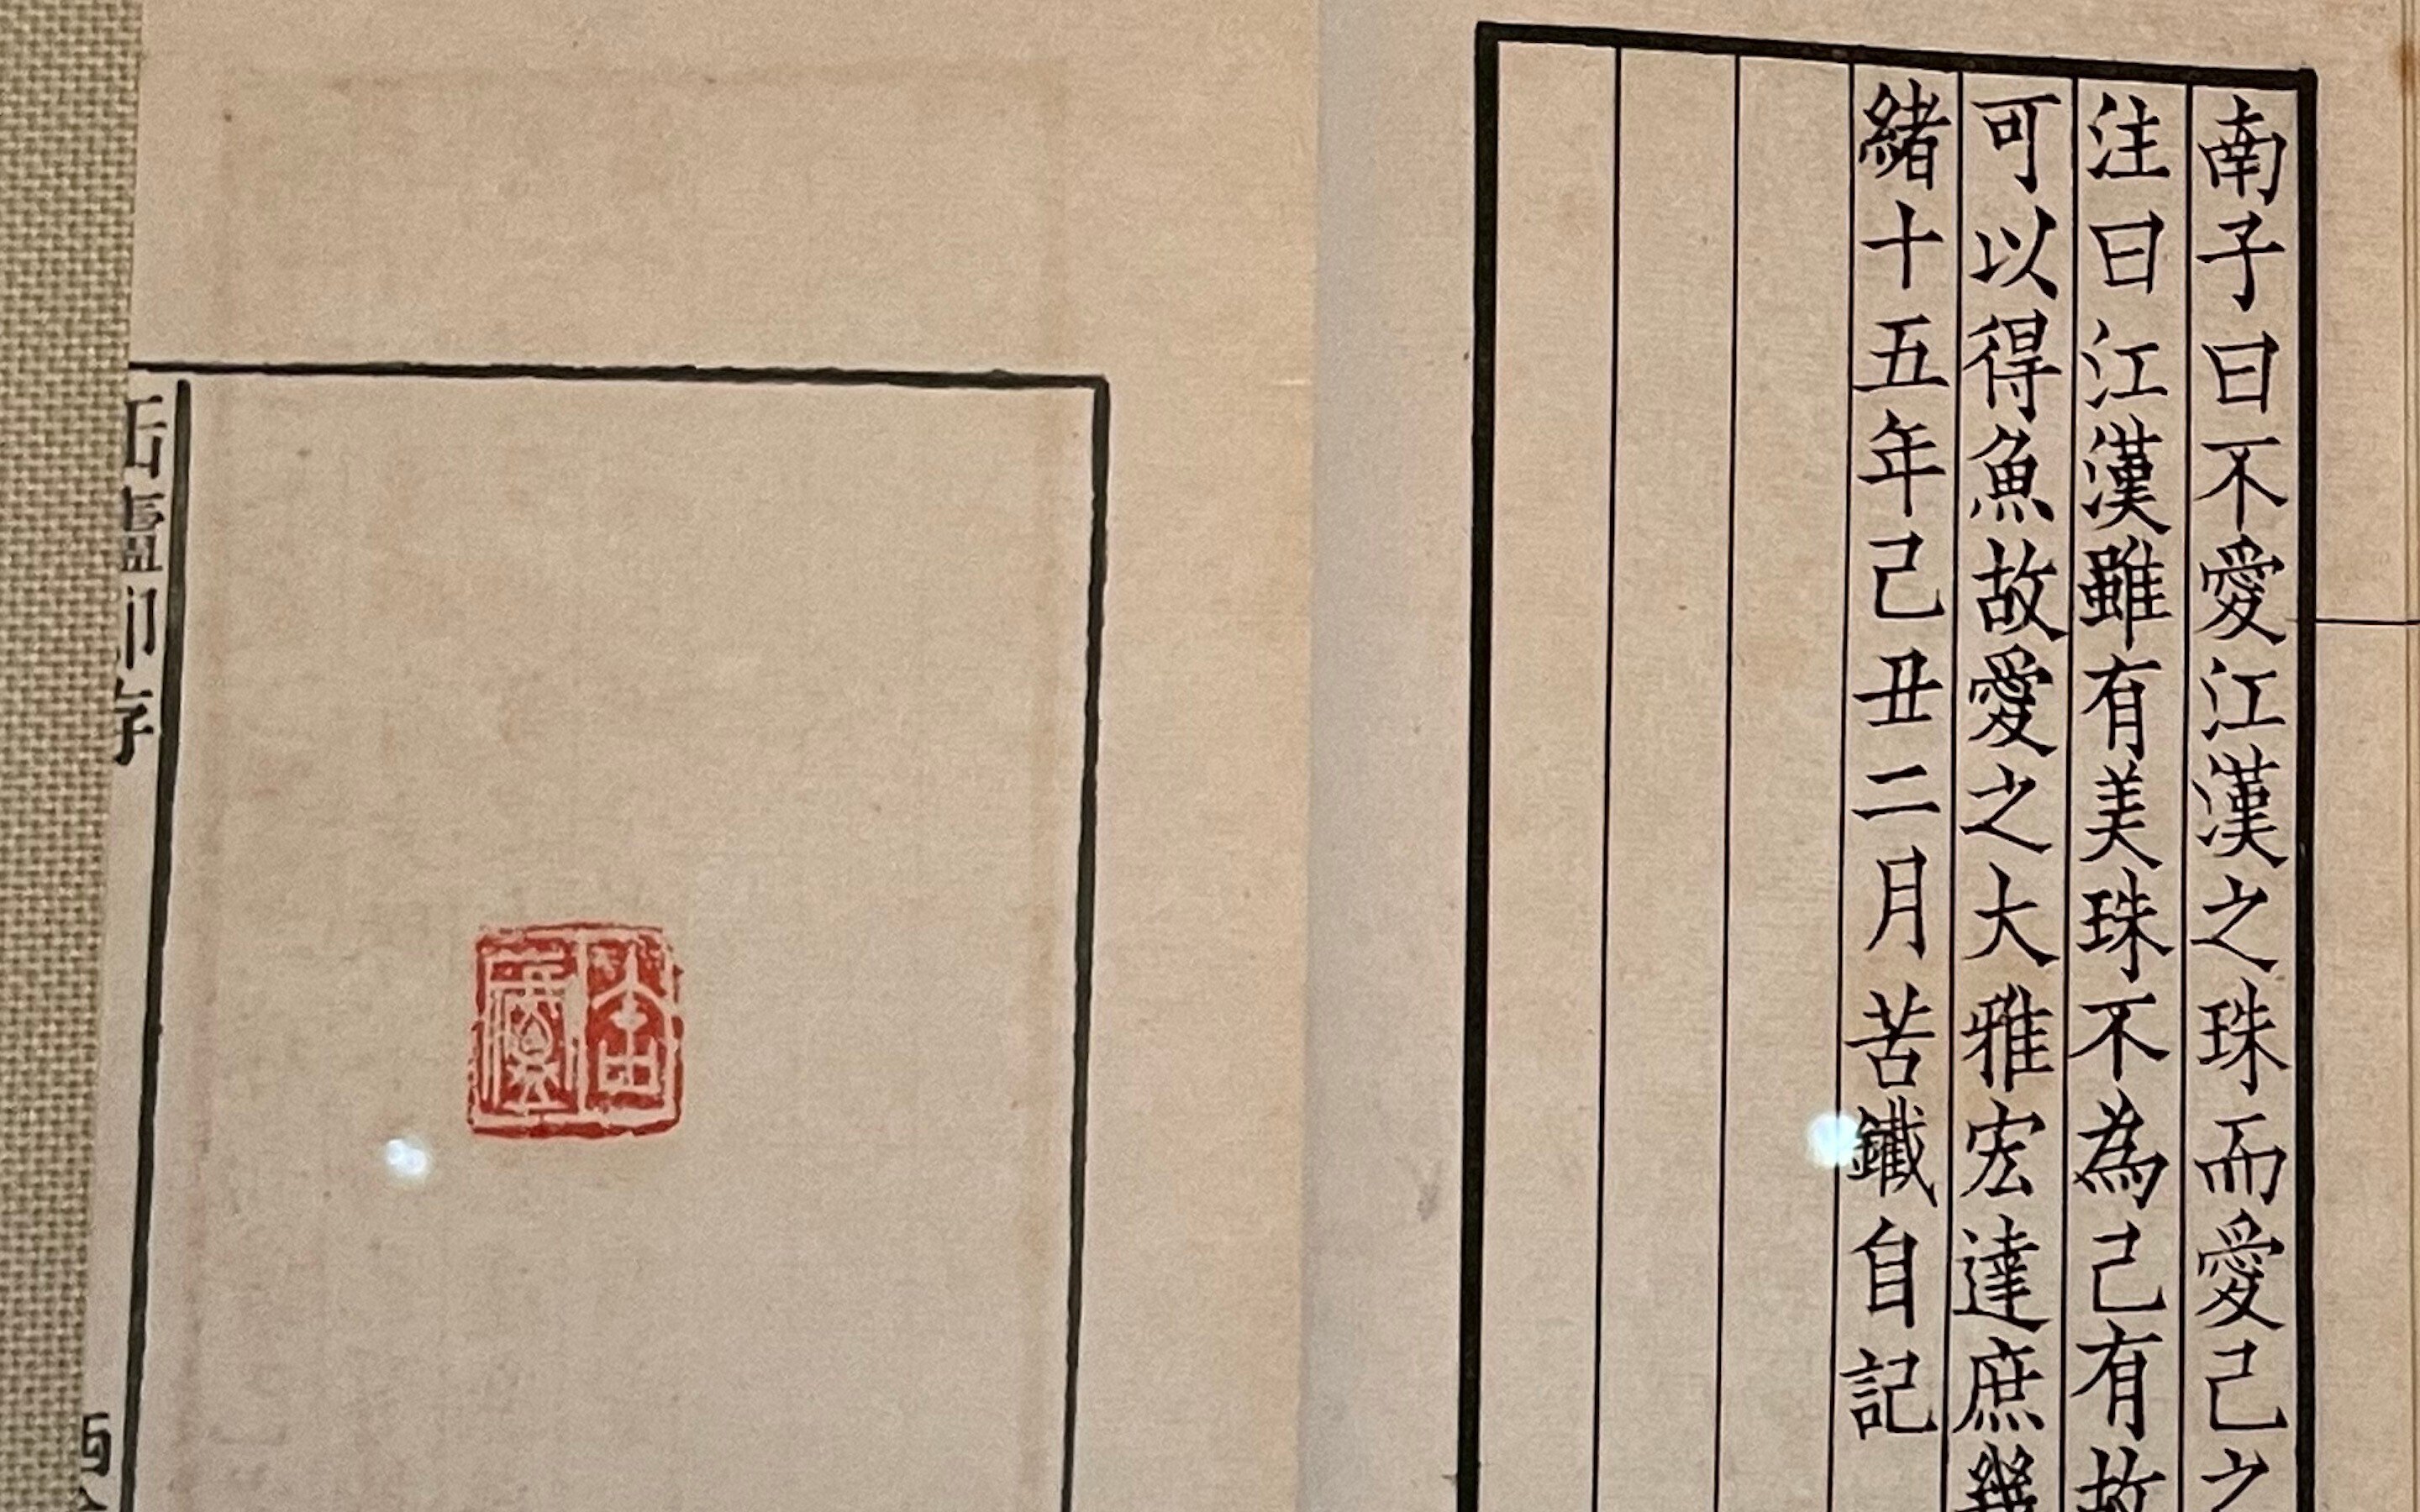 南子曰不愛江漢之珠而愛己之
注曰江漢雖有美珠不為己有故
可以得魚故愛之大雅宏達庶幾
緒十五年己丑二月苦鐵自記